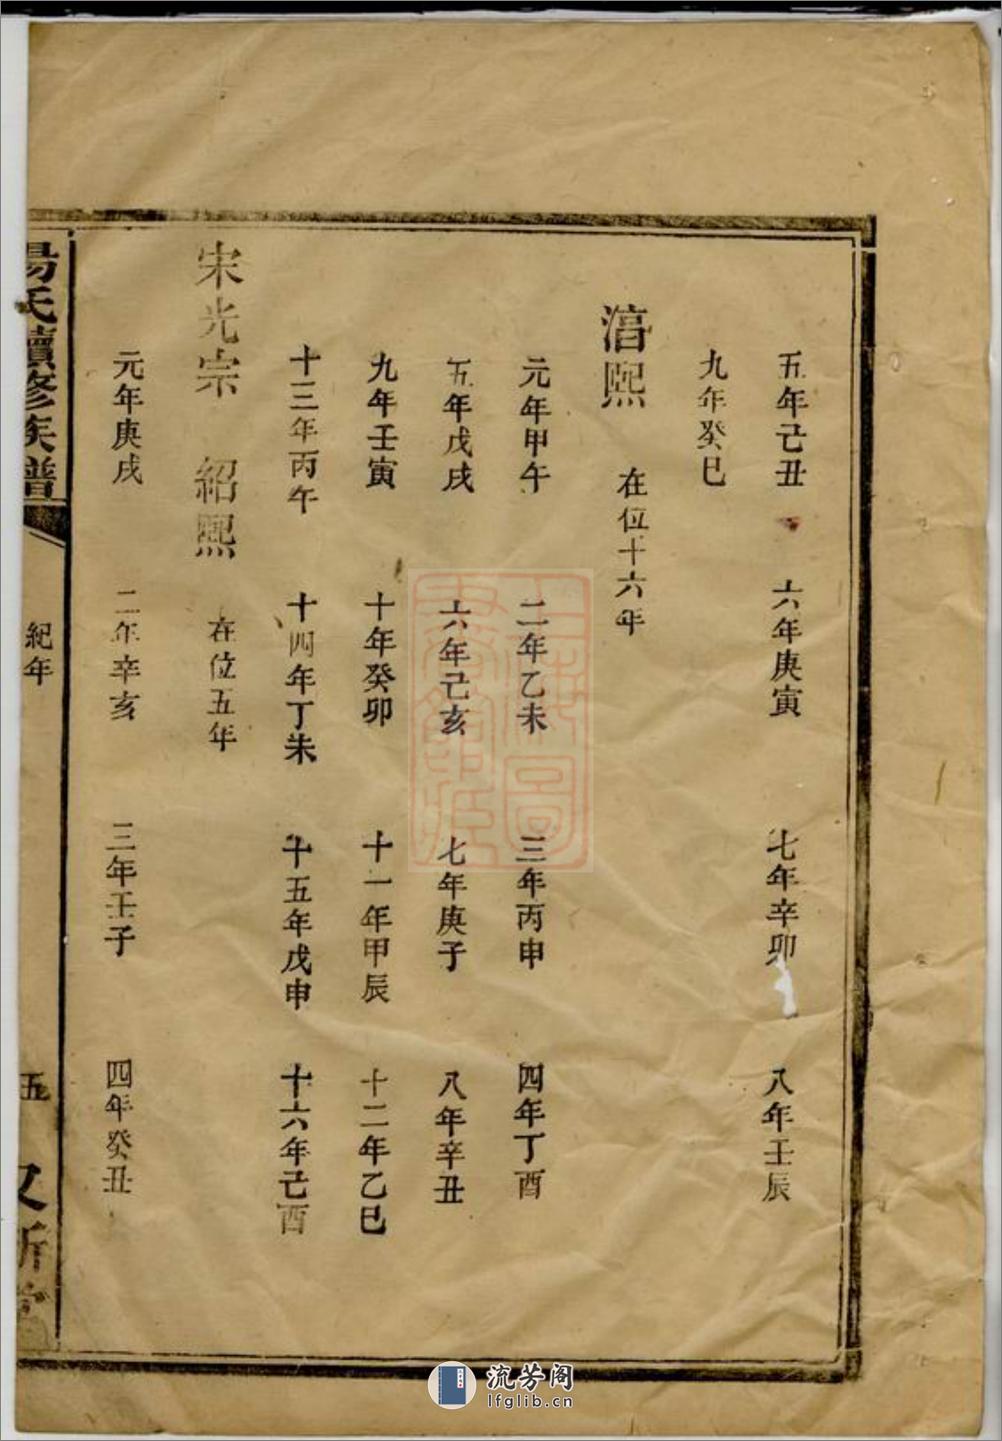 五年己丑 六年庚寅 七年辛卯 八年壬辰
九年癸巳
湻熙 在位十六年
元年甲午 二年乙未 三年丙申 四年丁酉
五年戊戌 六年己亥 七年庚子 八年辛丑
九年壬寅 十年癸卯 十一年甲辰 十二年乙巳
十三年丙午 十四年丁未 十五年戊申 十六年己酉
宋光宗 紹熙 在位五年
元年庚戌 二年辛亥 三年壬子 四年癸丑
氏續修族譜 紀年 五
上海圖書館藏
流芳阁
lfglib.cn